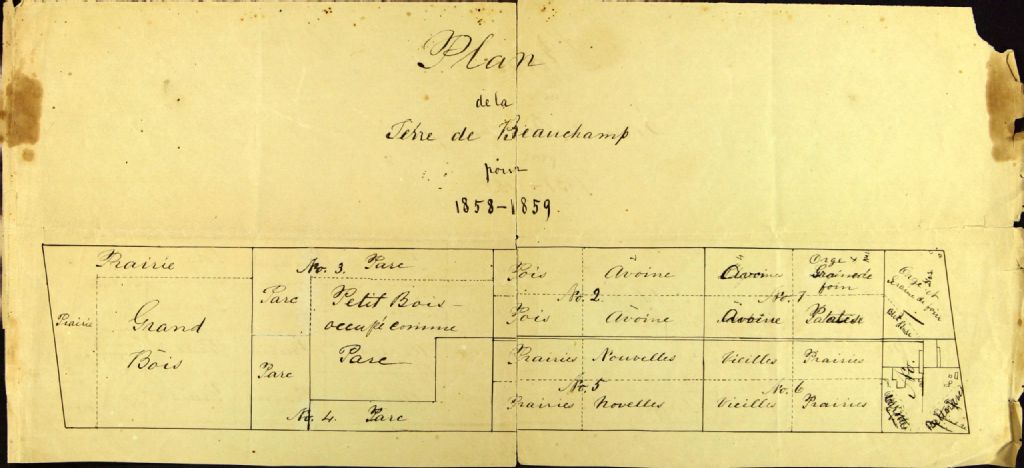 Plan
de la
Terre de Beauchamp
pour
1858-1859.
Prairie
Prairie
Grand
Bois
No. 3. Parc
Parc
Petit Bois-
occupé comme
Parc
Parc
No. 4. Parc
Pois Avoine
No. 2.
Pois Avoine
Avoine Orge &
Graine de
foin
No. 1
Avoine Patates
Orge et
Graine de foin
Prairies Nouvelles
No. 5
Prairies Novelles
Vieilles Prairies
No. 6
Vieilles Prairies